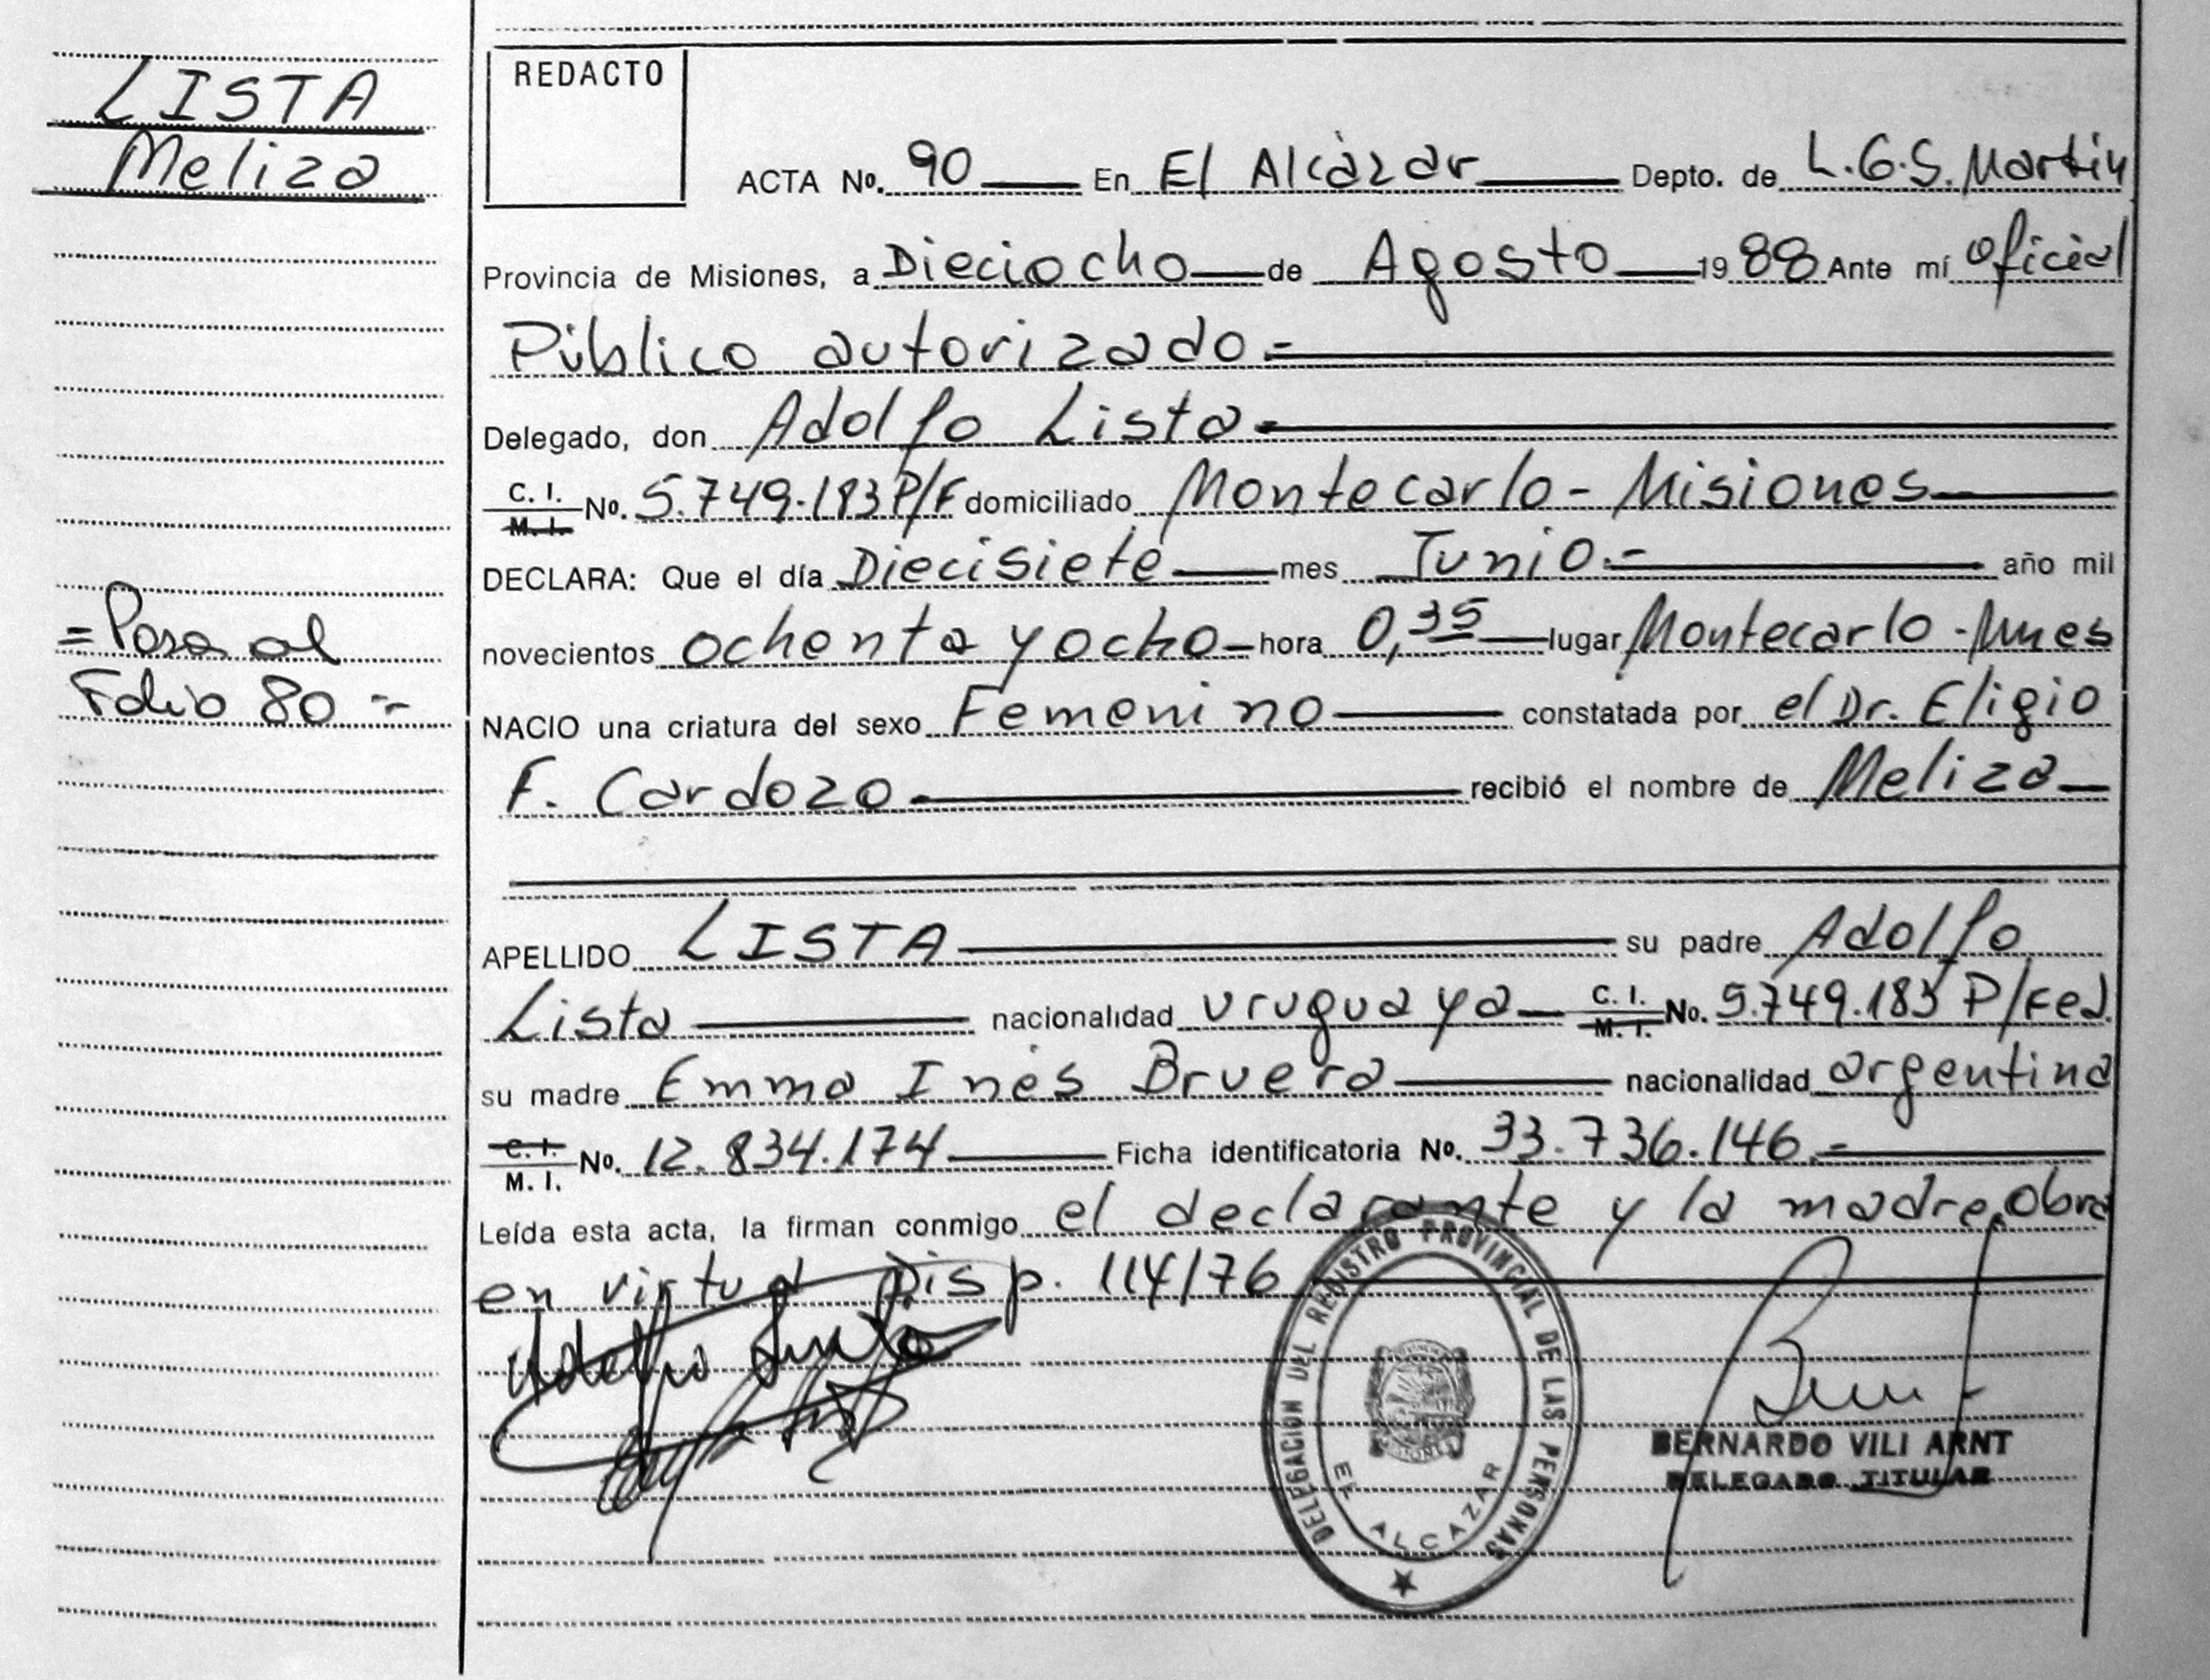 LISTA
Meliza
= Pasa al
Folio 80 =-
REDACTO
ACTA No. 90 En El Alcàzar Depto. de L.G.S. Martin
Provincia de Misiones, a Dieciocho de Agosto 1988 Ante mí oficial
Pùblico autorizado.=
Delegado, don Adolfo Lista
C. I. M. I. No. 5.749.183 P/F domiciliado Montecarlo - Misiones
DECLARA: Que el día Diecisiete mes Junio.- año mil
novecientos ochenta y ocho hora 0,35 lugar Montecarlo - Mnes
NACIO una criatura del sexo Femenino constatada por el Dr. Eligio
F. Cardozo recibió el nombre de Meliza
APELLIDO LISTA su padre Adolfo
Lista nacionalidad uruguaya C. I. M. I. No. 5.749.183 P/Fed.
su madre Emma Inès Bruera nacionalidad argentina
C. I. M. I. No. 12.834.174 Ficha identificatoria No. 33.736.146.-
Leída esta acta, la firman conmigo el declarante y la madre, obra
en virtud Disp. 114/76
Adolfo Lista
DELEGACION DEL REGISTRO PROVINCIAL DE LAS PERSONAS
MISIONES
EL ALCAZAR
BERNARDO VILI ARNT
DELEGADO TITULAR